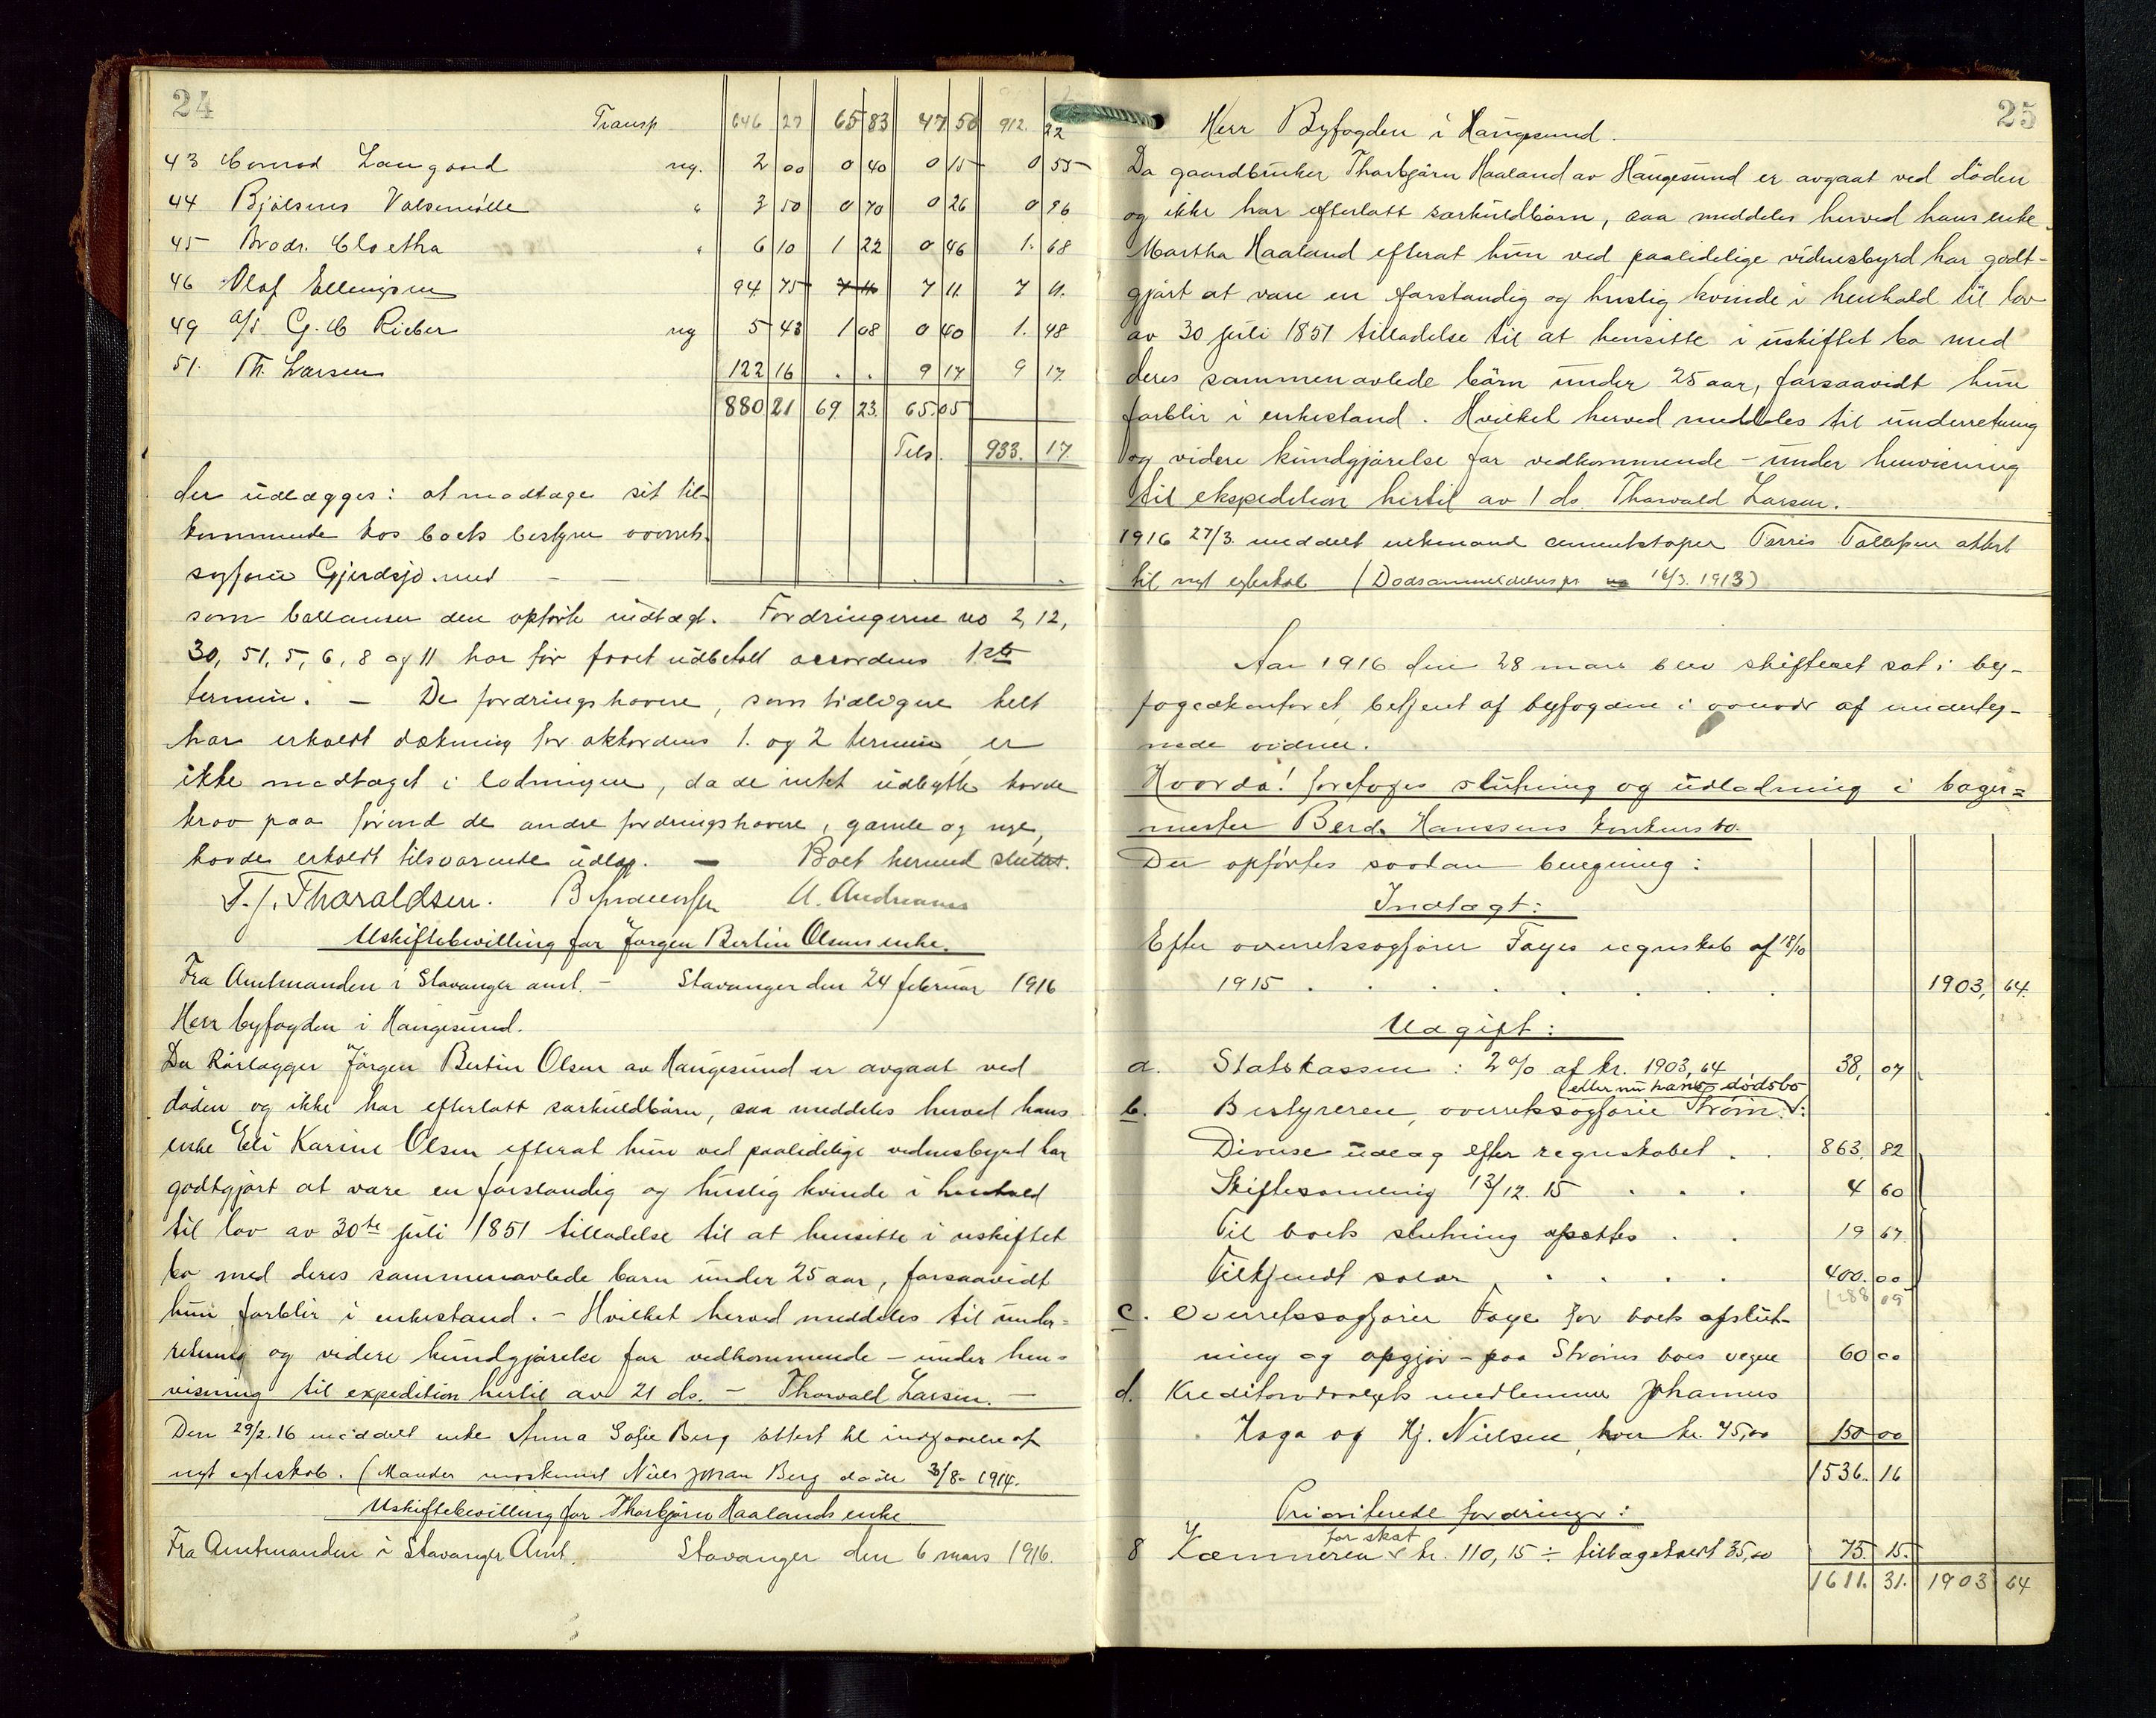 24
Transp 646 27 65 83 47 50 912. 22
43 Conrad Langaard ny. 2 00 0 40 0 15 0 55
44 Bjølsens Valsemølle " 3 50 0 70 0 26 0 96
45 Brødr. Cloetta " 6 10 1 22 0 46 1. 68
46 Olaf Ellingsen 94 75 7 11 7 11. 7 11.
49 a/s G. C Rieber ny 5 43 1 08 0 40 1. 48
51. Th. Larsen 122 16 . . 9 17 9 17.
880 21 69 23. 65.05
Tils. 933. 17.
der udlægges: at modtage sit til-
kommende hos boets bestyrer overrets-
sagfører Gjerdsjø med — —
som ballanser den opførte indtægt. Fordringerne no 2, 12,
30, 51, 5, 6, 8 og 11 har før faaet udbetalt accordens 1ste
termin. — De fordringshavere, som tidligere helt
har erholdt dækning for akkordens 1. og 2 termin, er
ikke medtaget i lodningen, da de intet udbytte havde
krav paa førend de andre fordringshavere, gamle og nye,
havde erholdt tilsvarende udlæg. — Boet hermed sluttet.
T. J. Tharaldsen. A. Andreassen
Uskiftebevilling for Jørgen Bertin Olsens enke.
Fra Amtmanden i Stavanger amt. — Stavanger den 24 februar 1916
Herr byfogden i Haugesund.
Da Rørlægger Jörgen Bertin Olsen av Haugesund er avgaat ved
döden og ikke har efterlatt særkuldbörn, saa meddeles herved hans
enke Eli Karine Olsen efterat hun ved paalidelige vidnesbyrd har
godtgjort at være en forstandig og huslig kvinde i henhold
til lov av 30te juli 1851 tilladelse til at hensitte i uskiftet
bo med deres sammenavlede barn under 25 aar, forsaavidt
hun forblir i enkestand. — Hvilket herved meddeles til under-
retning og videre kundgjörelse for vedkommende — under hen-
visning til expedition hertil av 21 ds. — Thorvald Larsen. —
Den 29/2.16 meddelt enke Anna Sofie Berg attest til indgaaelse af
nyt egteskab. (Manden maskinist Niels Johan Berg døde 3/8- 1914.
Uskiftebevilling for Thorbjørn Haalands enke
Fra Amtmanden i Stavanger Amt. Stavanger den 6 mars 1916.
25
Herr Byfogden i Haugesund.
Da gaardbruker Thorbjörn Haaland av Haugesund er avgaat ved döden
og ikke har efterlatt særkuldbörn, saa meddeles herved hans enke
Martha Haaland efterat hun ved paalidelige vidnesbyrd har godt-
gjort at være en forstandig og huslig kvinde i henhold til lov
av 30 juli 1851 tilladelse til at hensitte i uskiftet bo med
deres sammenavlede börn under 25 aar, forsaavidt hun
forblir i enkestand. Hvilket herved meddeles til underretning
og videre kundgjörelse for vedkommende — under henvisning
til ekspedition hertil av 1 ds. Thorvald Larsen.
1916 27/3. meddelt enkemand cementstøper Tørris Tollefsen attest
til nyt egteskab (Dødsanmeldelses pr 16/3. 1913)
Aar 1916 den 28 mars blev skifteret sat i by-
fogedkontoret, betjent af byfogden i overvær af underteg-
nede vidner.
Hvorda! foretoges slutning og udlodning i bager-
mester Berds Hanssens konkursbo.
Der opførtes saadan beregning:
Indtægt:
Efter overretssagfører Fayes regnskab af 18/10
1915 . . . . . . . 1903, 64.
Udgift:
a. Statskassen: 2 % af kr. 1903,64 38, 07
eller nu hans dødsbo
b. Bestyreren, overretssagfører Strøm:
Diverse udlæg efter regnskabet . . 863, 82
Skiftesamling 13/12. 15 . . . 4 60
Til boets slutning opsættes . . 19 67
Tilkjendt salær . . . . 400. 00
1288 09
c. Overretssagfører Faye for boets afslut-
ning og opgjør - paa Strøms boes vegne 60 00
d. Kreditorudvalgets medlemmer Johannes
Haga og Hj. Nielsen, hver kr. 75,00 150 00
1536. 16
Prioriterede fordringer:
for skat
8 Kæmneren kr. 110,15 ÷ tilbagebetalt 35,00 75. 15.
1611. 31. 1903 64